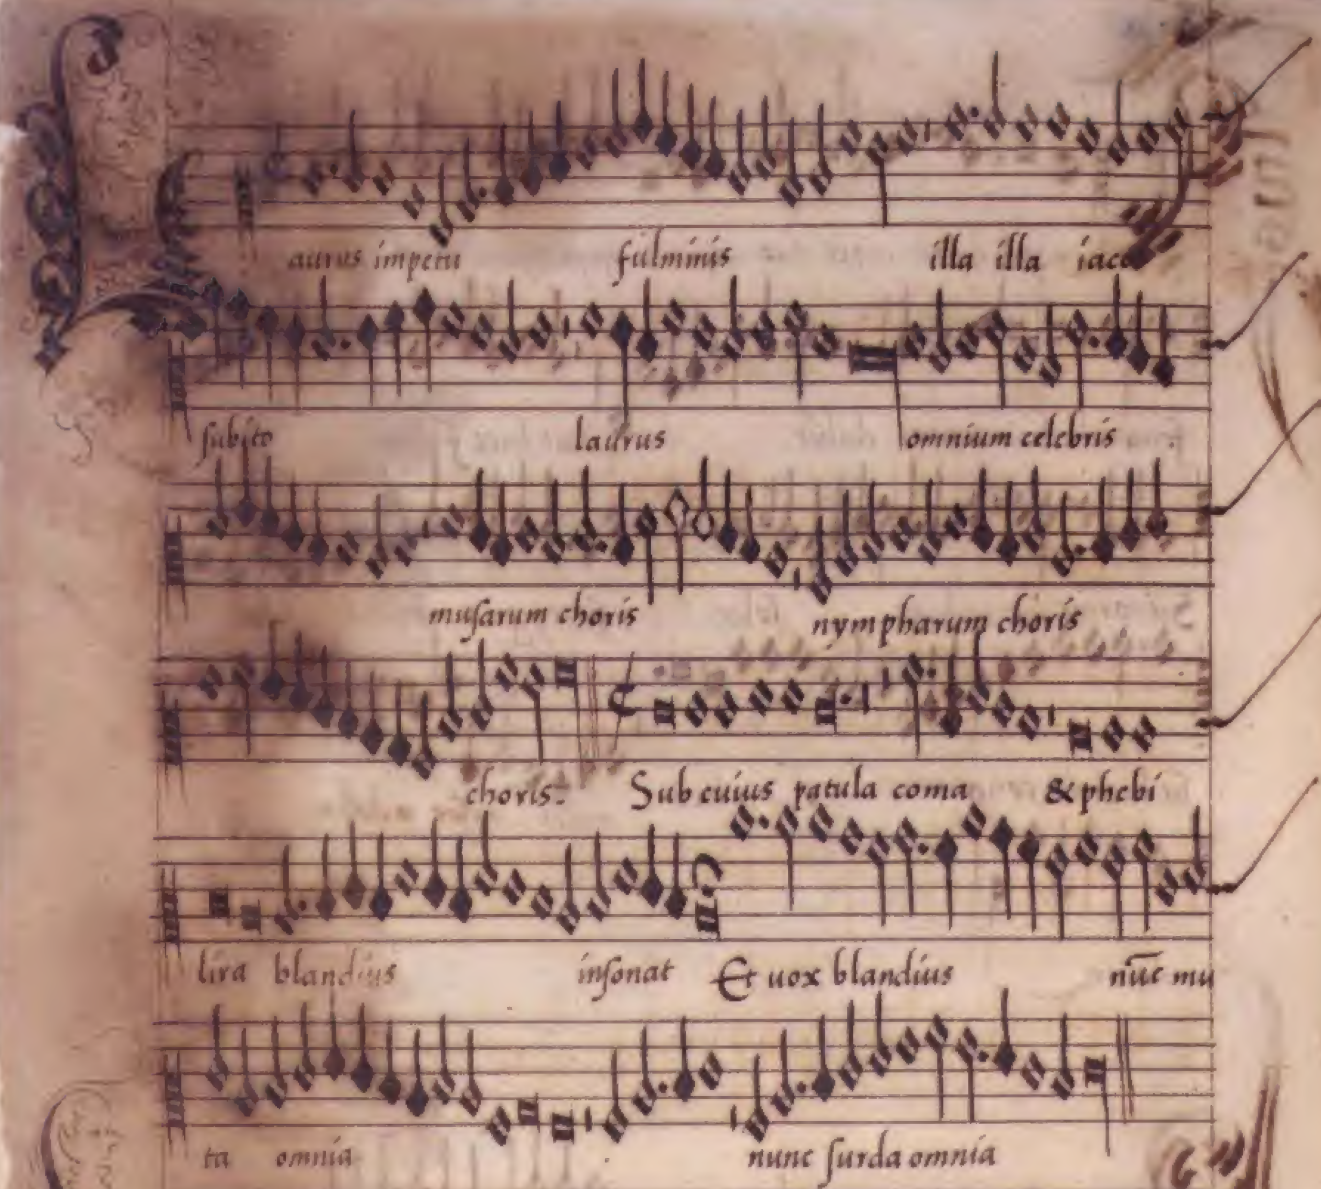 Laurus impetu fulminis illa illa iacet
subito laurus omnium celebris
musarum choris nympharum choris
choris: Sub cuius patula coma & phebi
lira blandius insonat Et uox blandius nūc mu
ta omnia nunc surda omnia